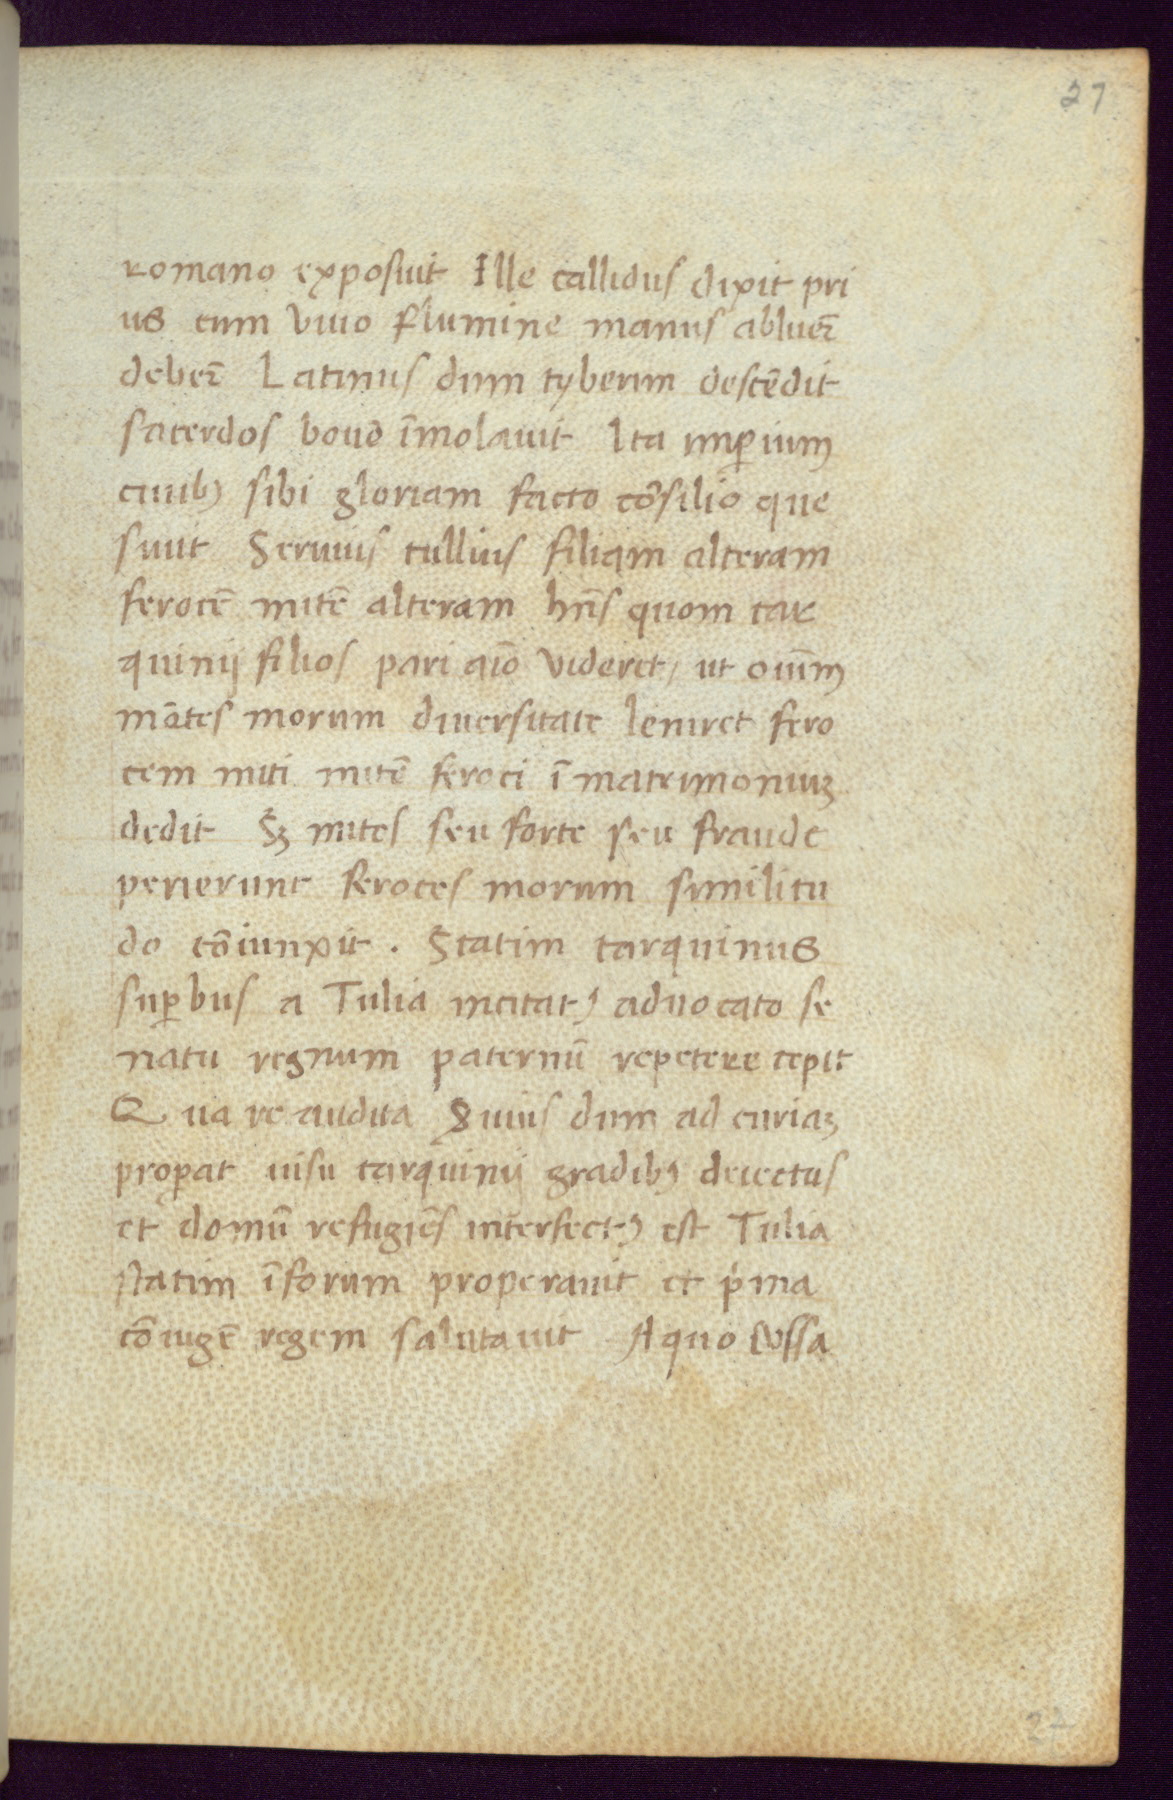 27
romano exposuit Ille callidus dixit pri
us eum viuo flumine manus abluer̄
deber̄ Latinus dum tyberim descēdit
sacerdos bouē īmolauit Ita imꝑium
ciuibꝫ sibi gloriam facto cōsilio que
siuit Seruius tullius filiam alteram
ferocē mitē alteram hn̄s quom tar
quinij filios pari aīo videret, ut oīum
mētes morum diuersitate leniret fero
cem miti mitē feroci ī matrimoniuꝫ
dedit Sꝫ mites seu forte seu fraude
perierunt feroces morum similitu
do cōiunxit . Statim tarquinus
suꝑbus a Tulia incitatꝰ aduocato se
natu regnum paternū repetere cepit
Qua re audita S̄uius dum ad curiaꝫ
proꝑat uisu tarquinii gradibꝫ deiectus
et domū refugiēs int̄erfectꝰ est Tulia
statim ī forum properauit et pͥma
cōiugē regem salutauit A quo iussa
22